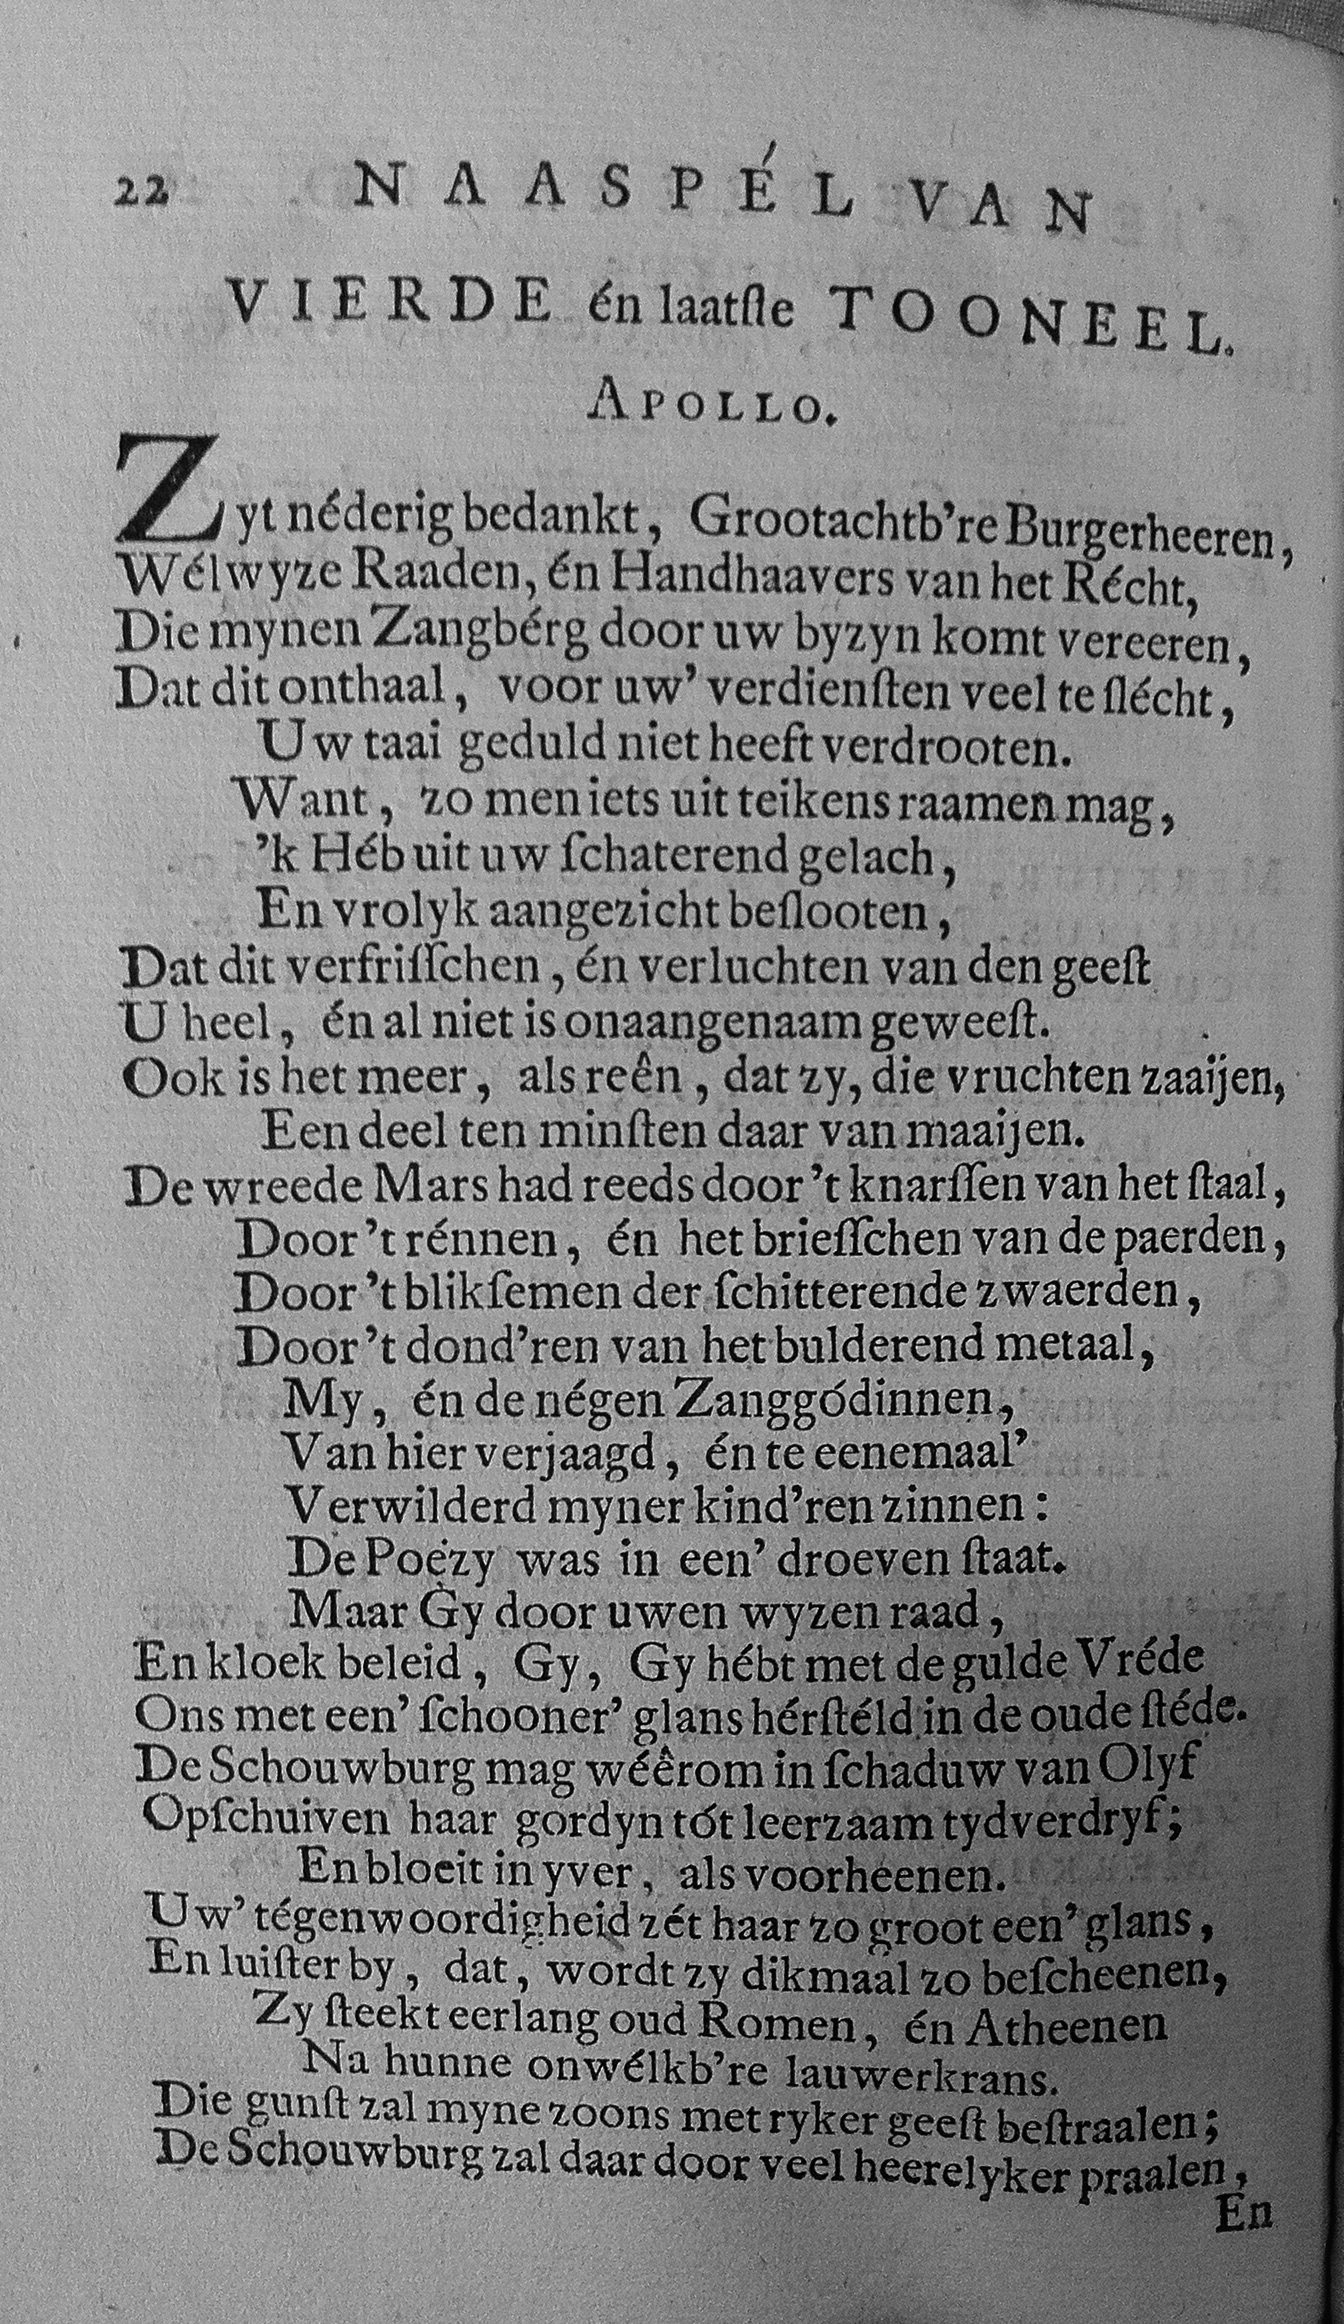 22 NAASPÉL VAN
VIERDE én laatſte TOONEEL.
APOLLO.
Zyt néderig bedankt, Grootachtb're Burgerheeren,
Wélwyze Raaden, én Handhaavers van het Récht,
Die mynen Zangbérg door uw byzyn komt vereeren,
Dat dit onthaal, voor uw' verdienſten veel te ſlécht,
Uw taai geduld niet heeft verdrooten.
Want, zo men iets uit teikens raamen mag,
'k Héb uit uw ſchaterend gelach,
En vrolyk aangezicht beſlooten,
Dat dit verfriſſchen, én verluchten van den geeſt
U heel, én al niet is onaangenaam geweeſt.
Ook is het meer, als reên, dat zy, die vruchten zaaijen,
Een deel ten minſten daar van maaijen.
De wreede Mars had reeds door 't knarſſen van het ſtaal,
Door 't rénnen, én het brieſſchen van de paerden,
Door 't blikſemen der ſchitterende zwaerden,
Door 't dond'ren van het bulderend metaal,
My, én de négen Zanggódinnen,
Van hier verjaagd, én te eenemaal'
Verwilderd myner kind'ren zinnen:
De Poëzy was in een' droeven ſtaat.
Maar Gy door uwen wyzen raad,
En kloek beleid, Gy, Gy hébt met de gulde Vréde
Ons met een' ſchooner' glans hérſtéld in de oude ſtéde.
De Schouwburg mag wéêrom in ſchaduw van Olyf
Opſchuiven haar gordyn tót leerzaam tydverdryf;
En bloeit in yver, als voorheenen.
Uw' tégenwoordigheid zét haar zo groot een' glans,
En luiſter by, dat, wordt zy dikmaal zo beſcheenen,
Zy ſteekt eerlang oud Romen, én Atheenen
Na hunne onwélkb're lauwerkrans.
Die gunſt zal myne zoons met ryker geeſt beſtraalen;
De Schouwburg zal daar door veel heerelyker praalen,
En